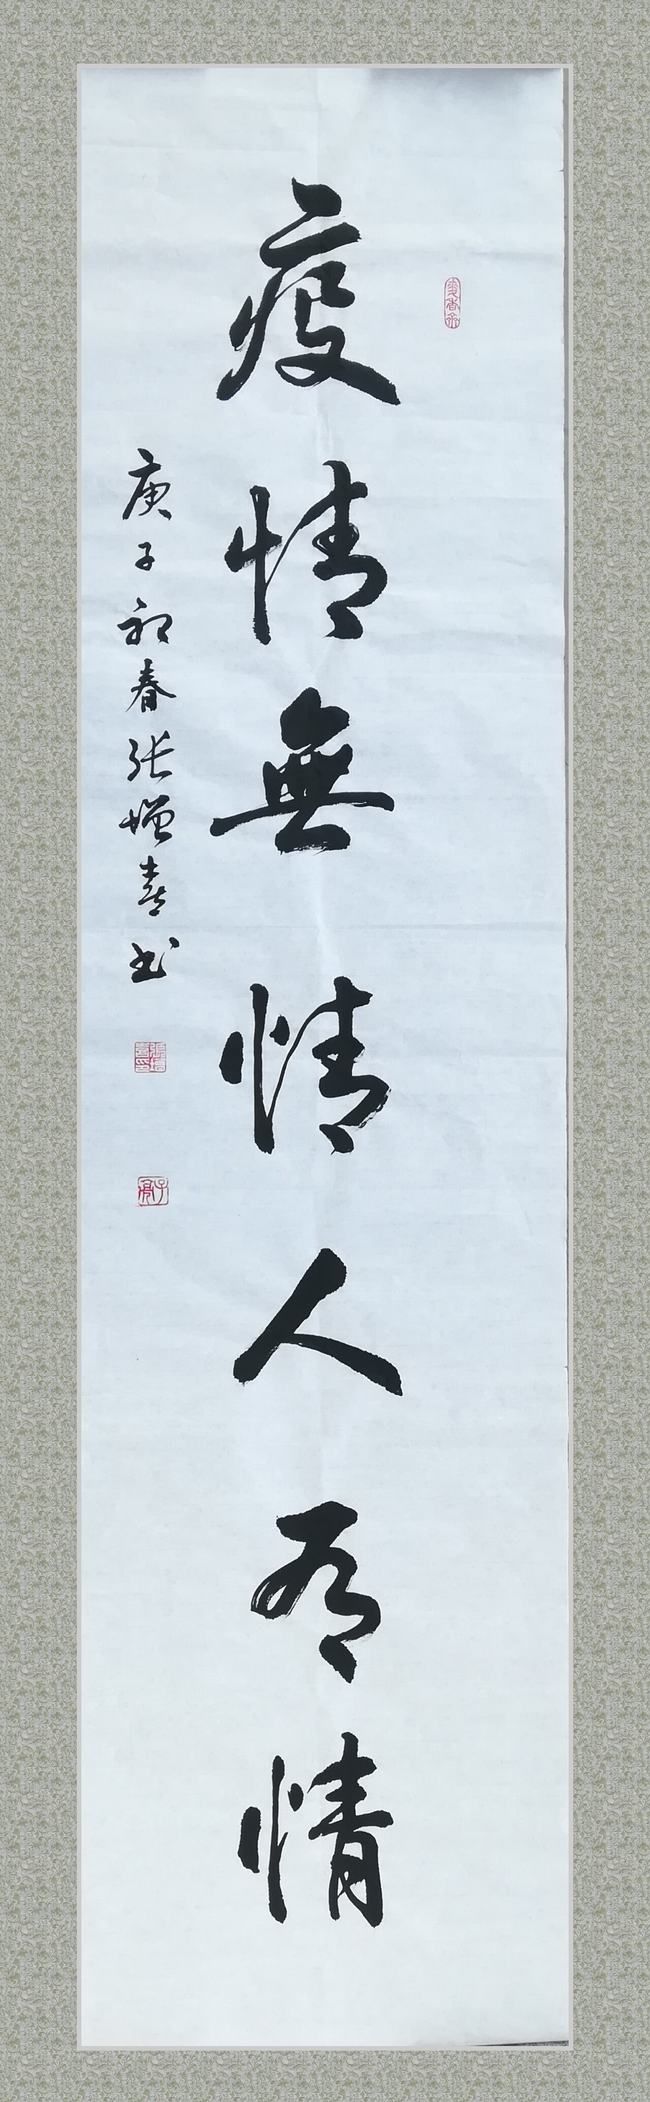 疫情無情人有情
庚子初春张增喜书